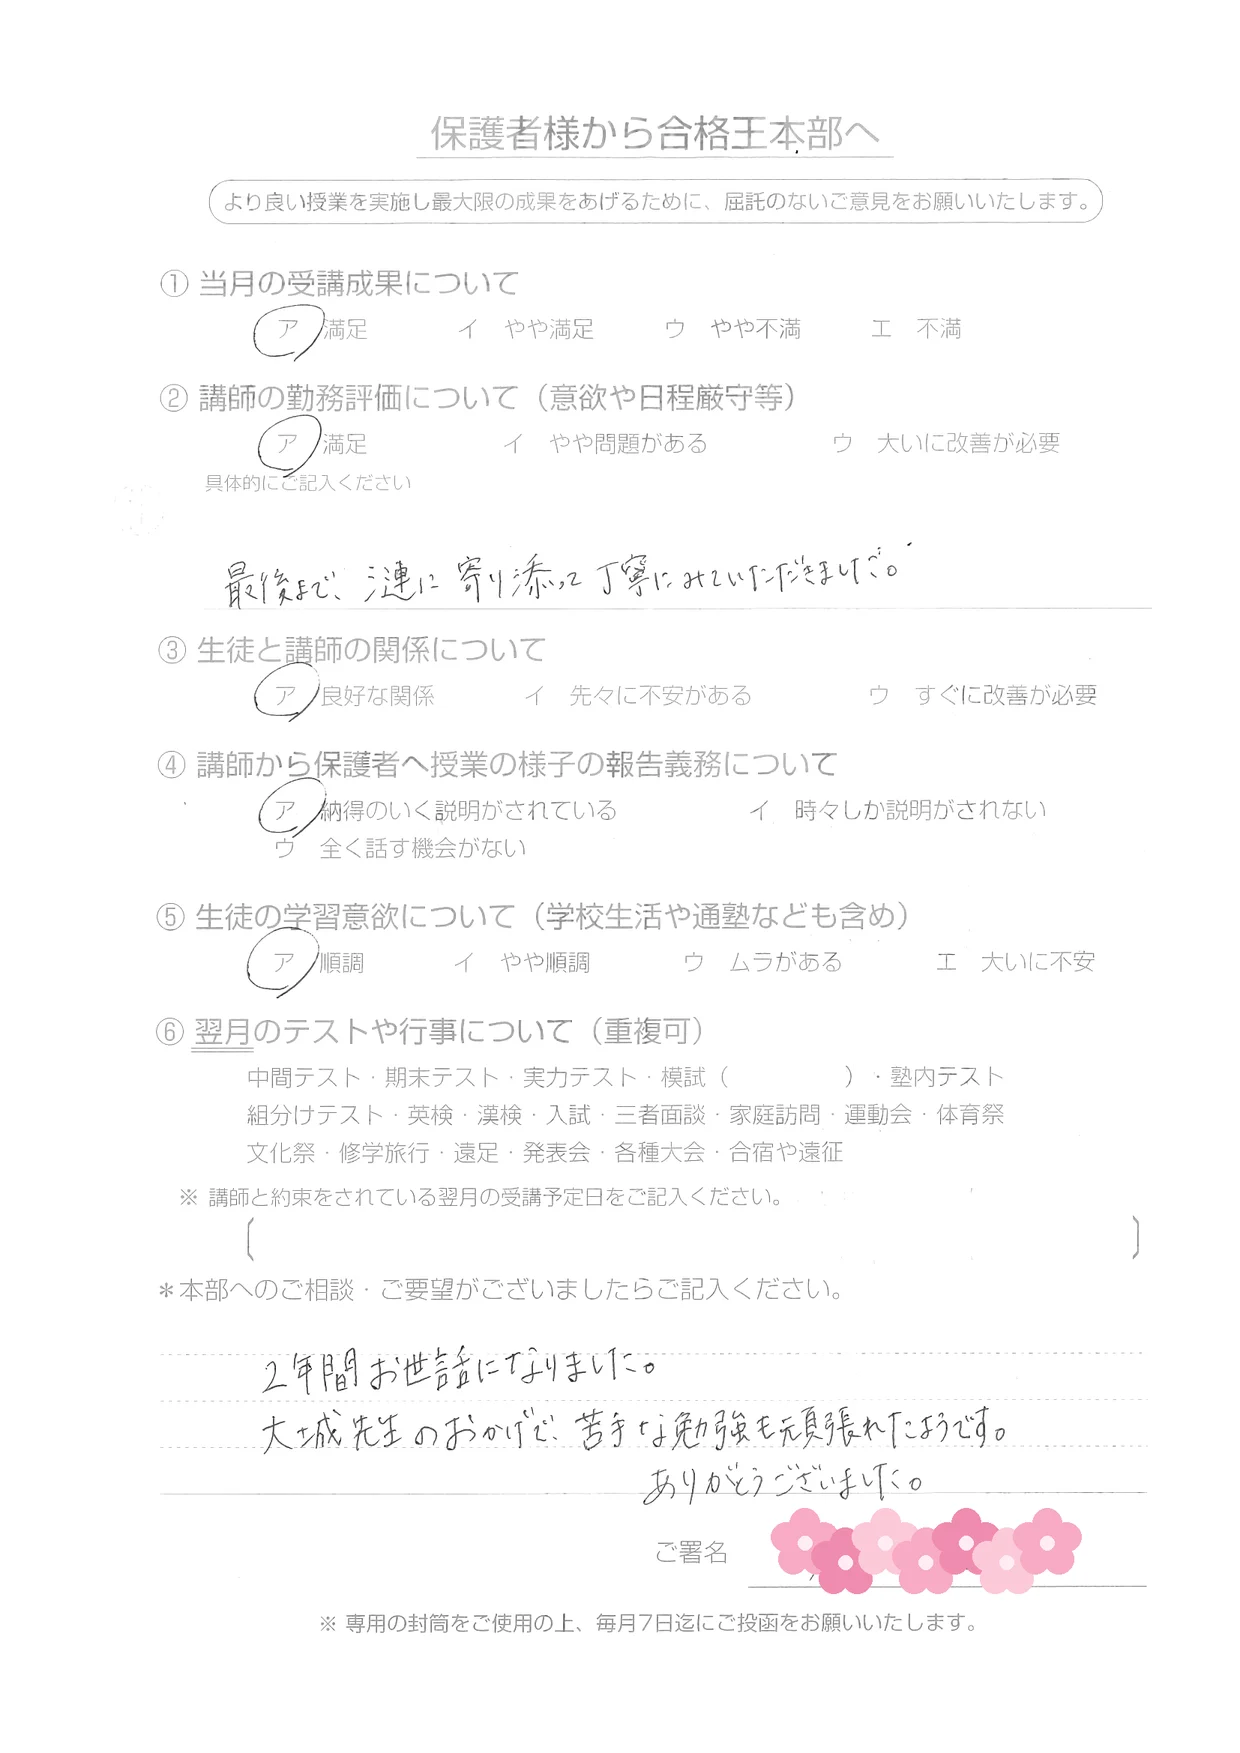 保護者様から合格王本部へ
より良い授業を実施し最大限の成果をあげるために、屈託のないご意見をお願いいたします。
① 当月の受講成果について
ア 満足 イ やや満足 ウ やや不満 エ 不満
② 講師の勤務評価について（意欲や日程厳守等）
ア 満足 イ やや問題がある ウ 大いに改善が必要
具体的にご記入ください
最後まで、漣に寄り添って丁寧にみていただきました。
③ 生徒と講師の関係について
ア 良好な関係 イ 先々に不安がある ウ すぐに改善が必要
④ 講師から保護者へ授業の様子の報告義務について
ア 納得のいく説明がされている イ 時々しか説明がされない
ウ 全く話す機会がない
⑤ 生徒の学習意欲について（学校生活や通塾なども含め）
ア 順調 イ やや順調 ウ ムラがある エ 大いに不安
⑥ 翌月のテストや行事について（重複可）
中間テスト・期末テスト・実力テスト・模試（ ）・塾内テスト
組分けテスト・英検・漢検・入試・三者面談・家庭訪問・運動会・体育祭
文化祭・修学旅行・遠足・発表会・各種大会・合宿や遠征
※ 講師と約束をされている翌月の受講予定日をご記入ください。
〔 〕
＊本部へのご相談・ご要望がございましたらご記入ください。
2年間お世話になりました。
大城先生のおかげで、苦手な勉強も頑張れたようです。
ありがとうございました。
ご署名
※ 専用の封筒をご使用の上、毎月7日迄にご投函をお願いいたします。